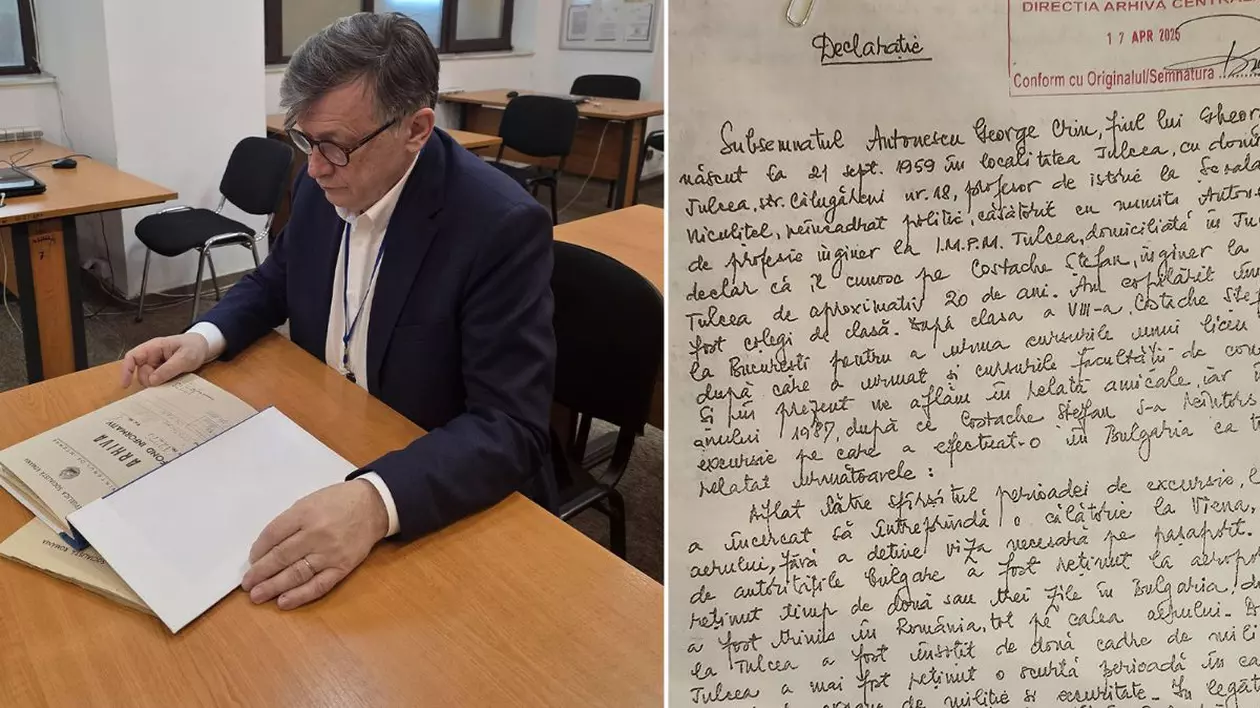 ARHIVA
FOND INFORMATIV
REPUBLICA SOCIALISTĂ ROMÂNIA
SOCIALISTĂ ROMÂNIA
DIRECTIA ARHIVA CENTRAL
17 APR 2025
Conform cu Originalul/Semnatura
Declarație
Subsemnatul Antonescu George Crin, fiul lui Gheor
născut la 21 sept. 1959 în localitatea Tulcea, cu domi
Tulcea, str. Călugăreni nr. 18, profesor de istorie la Școala
Niculițel, neîncadrat politic, căsătorit cu numita Anton
de profesie inginer la I.M.P.M. Tulcea, domiciliată în Tu
declar că îl cunosc pe Costache Ștefan, inginer la
Tulcea de aproximativ 20 de ani. Am copilărit în
fost colegi de clasă. După clasa a VIII-a, Costache Ște
la București pentru a urma cursurile unui liceu
după care a urmat și cursurile facultății de con
Și în prezent ne aflăm în relații amicale, iar
anului 1987, după ce Costache Ștefan s-a reîntors
excursie pe care a efectuat-o în Bulgaria ca
relatat următoarele :
Aflat către sfîrșitul perioadei de excursie,
a încercat să întreprindă o călătorie la Viena,
aerului, fără a deține viza necesară pe pașaport.
de autoritățile bulgare a fost reținut la aeropo
reținut timp de două sau trei zile în Bulgaria, d
a fost trimis în România, tot pe calea aerului.
la Tulcea a fost însoțit de două cadre de mili
Tulcea a mai fost reținut o scurtă perioadă în ca
de miliție și securitate. În legăt